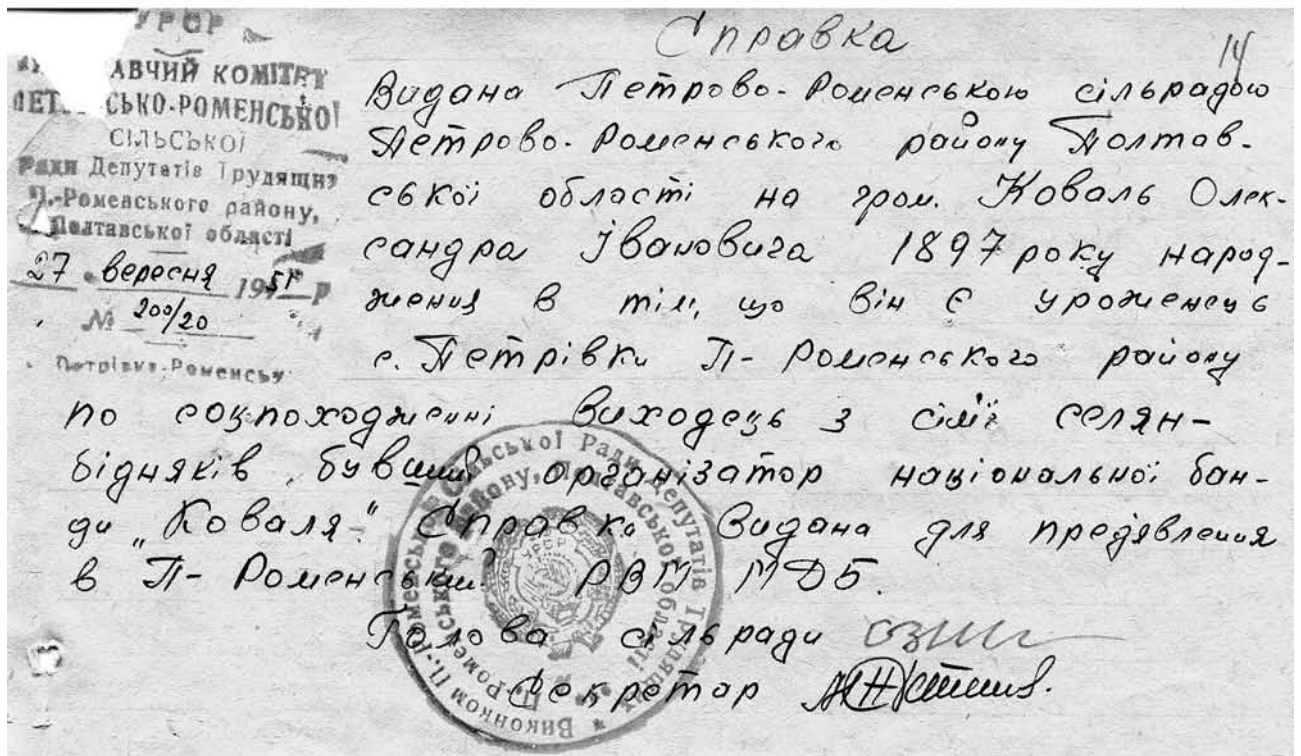 УРСР
АВЧИЙ КОМІТЕТ
ПЕТ СЬКО-РОМЕНСЬКОЇ
СІЛЬСЬКОЇ
Ради Депутатів Трудящих
П.-Роменського району,
Полтавської області
27 вересня 1951 р
№ 200/20
Петрівка-Роменськ
14
Справка
Видана Петрово-Роменською сільрадою
Петрово-Роменського району Полтав-
ської області на гром. Коваль Олек-
сандра Івановича 1897 року народ-
ження в тім, що він є уроженець
с. Петрівки П-Роменського району
по соцпоходженні виходець з сімї селян-
бідняків, бувший організатор національної бан-
ди „Коваля". Справка видана для предявлення
в П-Роменський РВМ МДБ.
Голова сільради
Секретар
Виконком П.-Роменської Сільської Ради Депутатів Трудящих
П-Роменського району, Полтавської області
УРСР